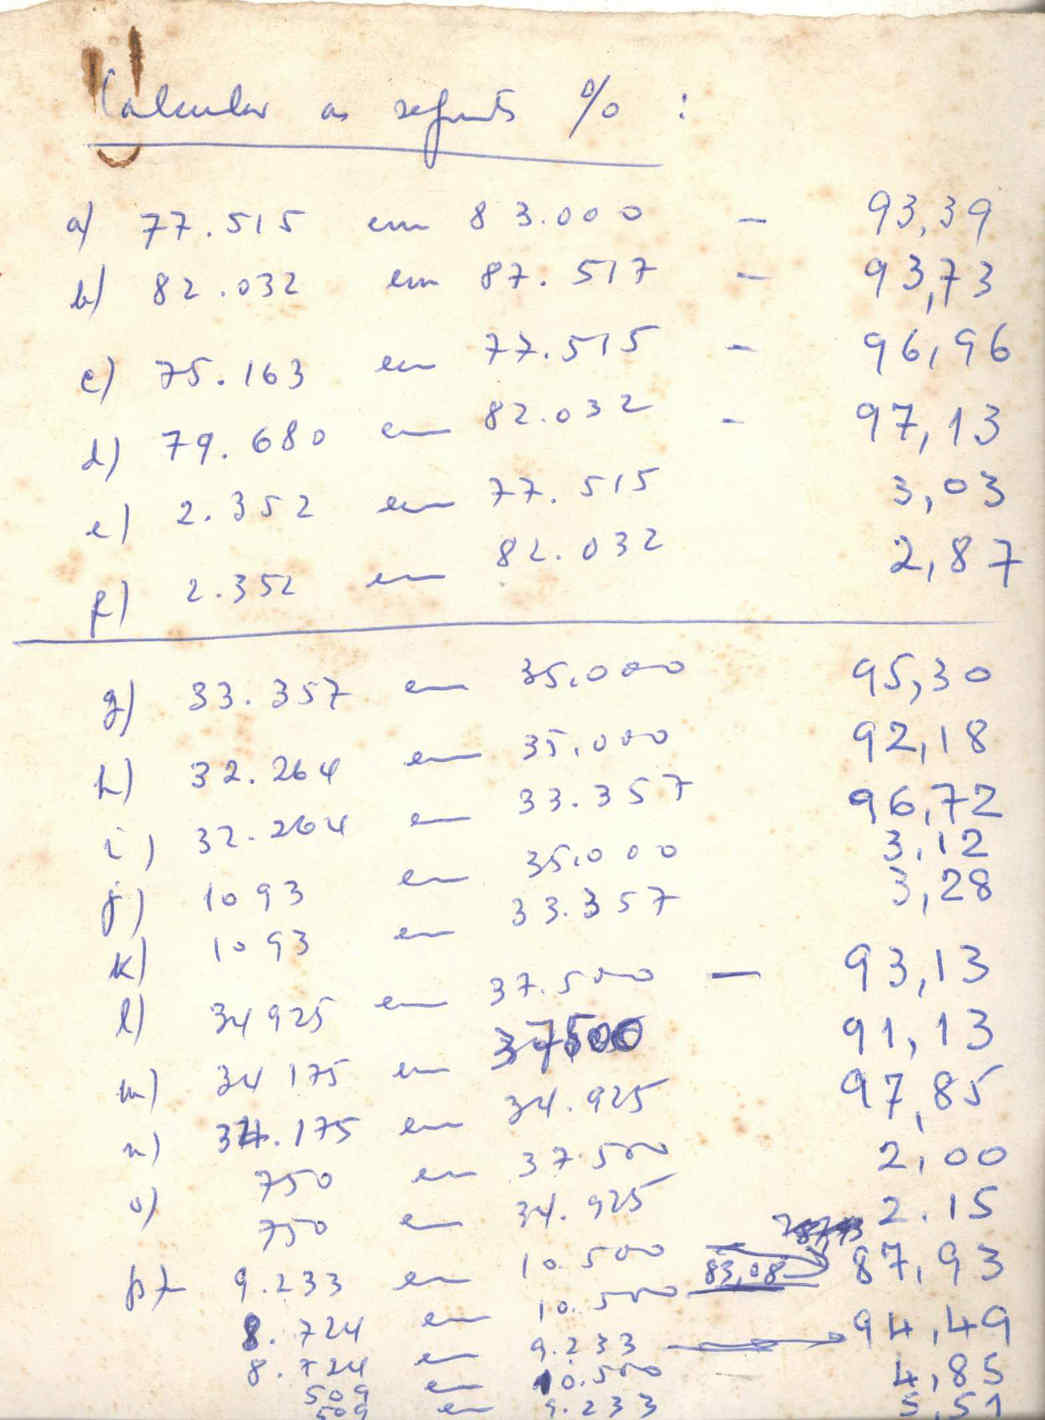 Calcular as seguints % :
a) 77.515 em 83.000 - 93,39
b) 82.032 em 87.517 - 93,73
c) 75.163 em 77.515 - 96,96
d) 79.680 em 82.032 - 97,13
e) 2.352 em 77.515 3,03
f) 2.352 em 82.032 2,87
g) 33.357 em 35.000 95,30
h) 32.264 em 35.000 92,18
i) 32.264 em 33.357 96,72
j) 1093 em 35.000 3,12
k) 1093 em 33.357 3,28
l) 34925 em 37.500 - 93,13
m) 34175 em 37500 91,13
n) 34.175 em 34.925 97,85
o) 750 em 37.500 2,00
750 em 34.925 2.15
p) 9.233 em 10.500 87,93
8.724 em 10.500 83,08
8.724 em 9.233 94,49
509 em 10.500 4,85
509 em 9.233 5,51